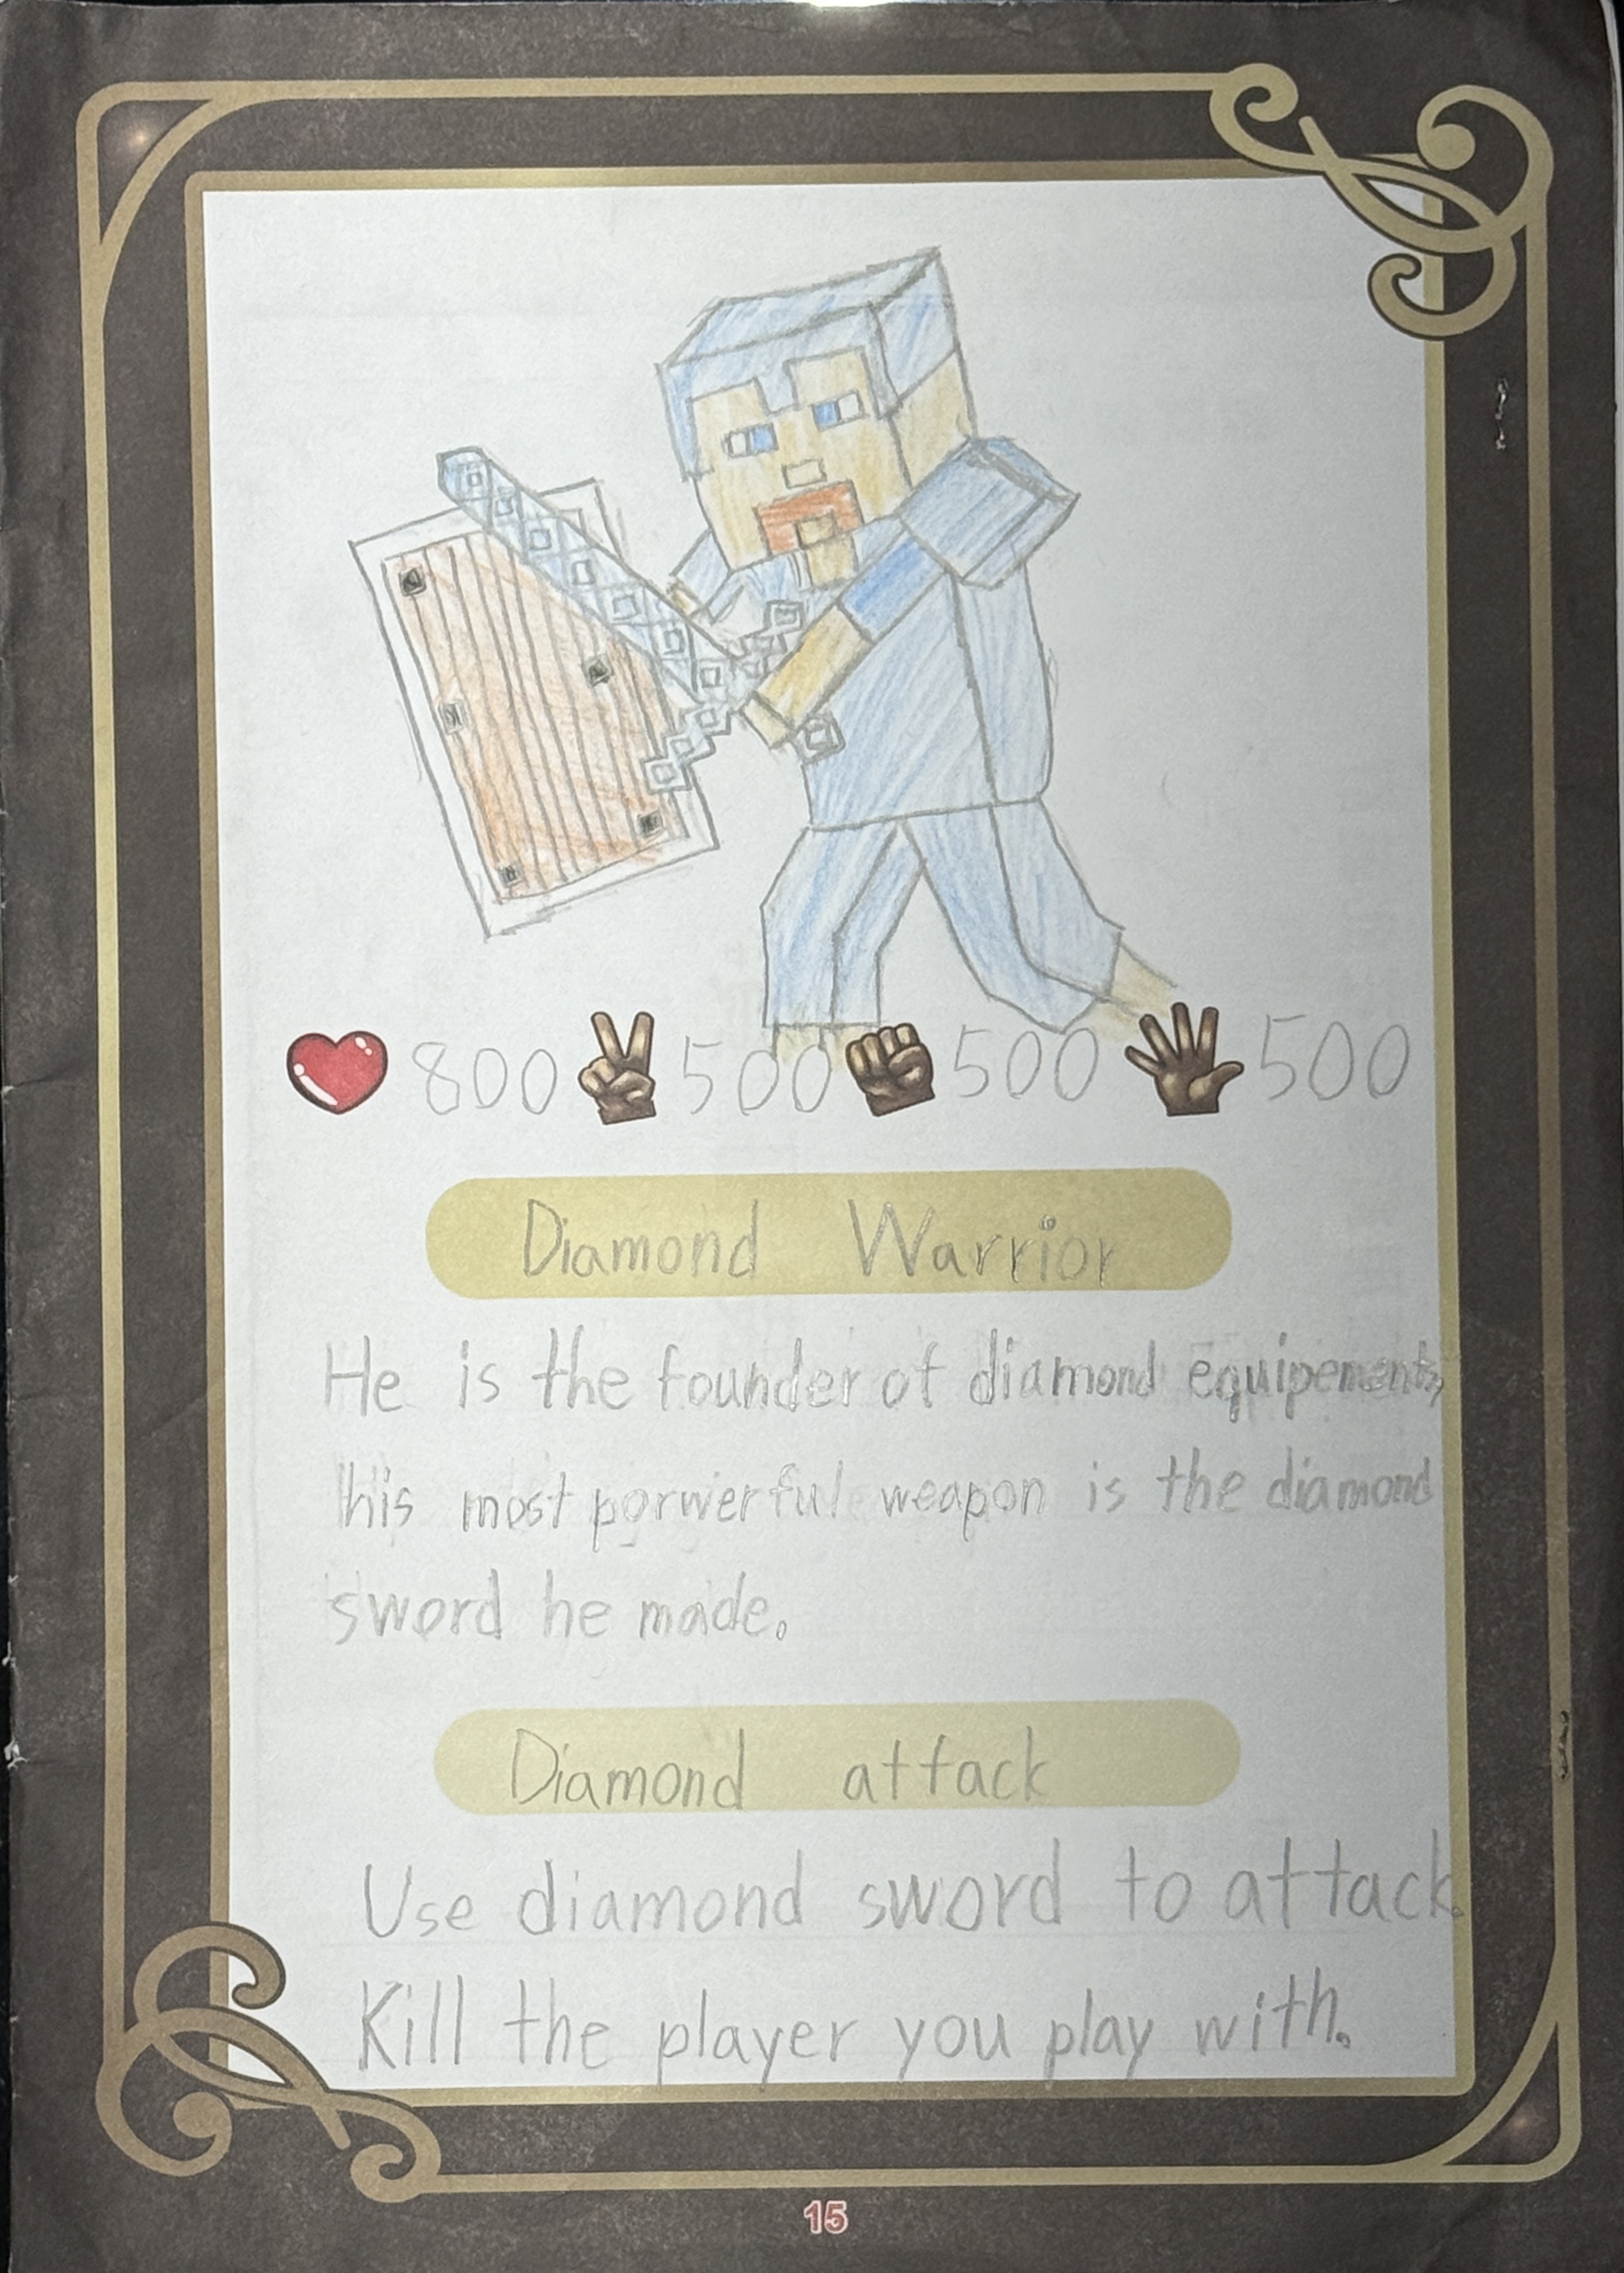 800 500 500 500
Diamond Warrior
He is the founder of diamond equipements,
his most porwerful weapon is the diamond
sword he made.
Diamond attack
Use diamond sword to attack.
Kill the player you play with.
15